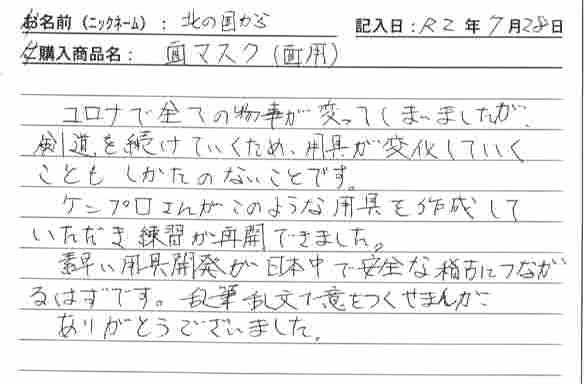 お名前（ニックネーム）： 北の国から 記入日：R2年7月28日
ご購入商品名： 面マスク（面用）
コロナで全ての物事が変ってしまいましたが、
剣道を続けていくため、用具が変化していく
こともしかたのないことです。
ケンプロさんがこのような用具を作成して
いただき練習が再開できました。
素早い用具開発が日本中で安全な稽古につなが
るはずです。乱筆乱文で意をつくせませんが
ありがとうございました。